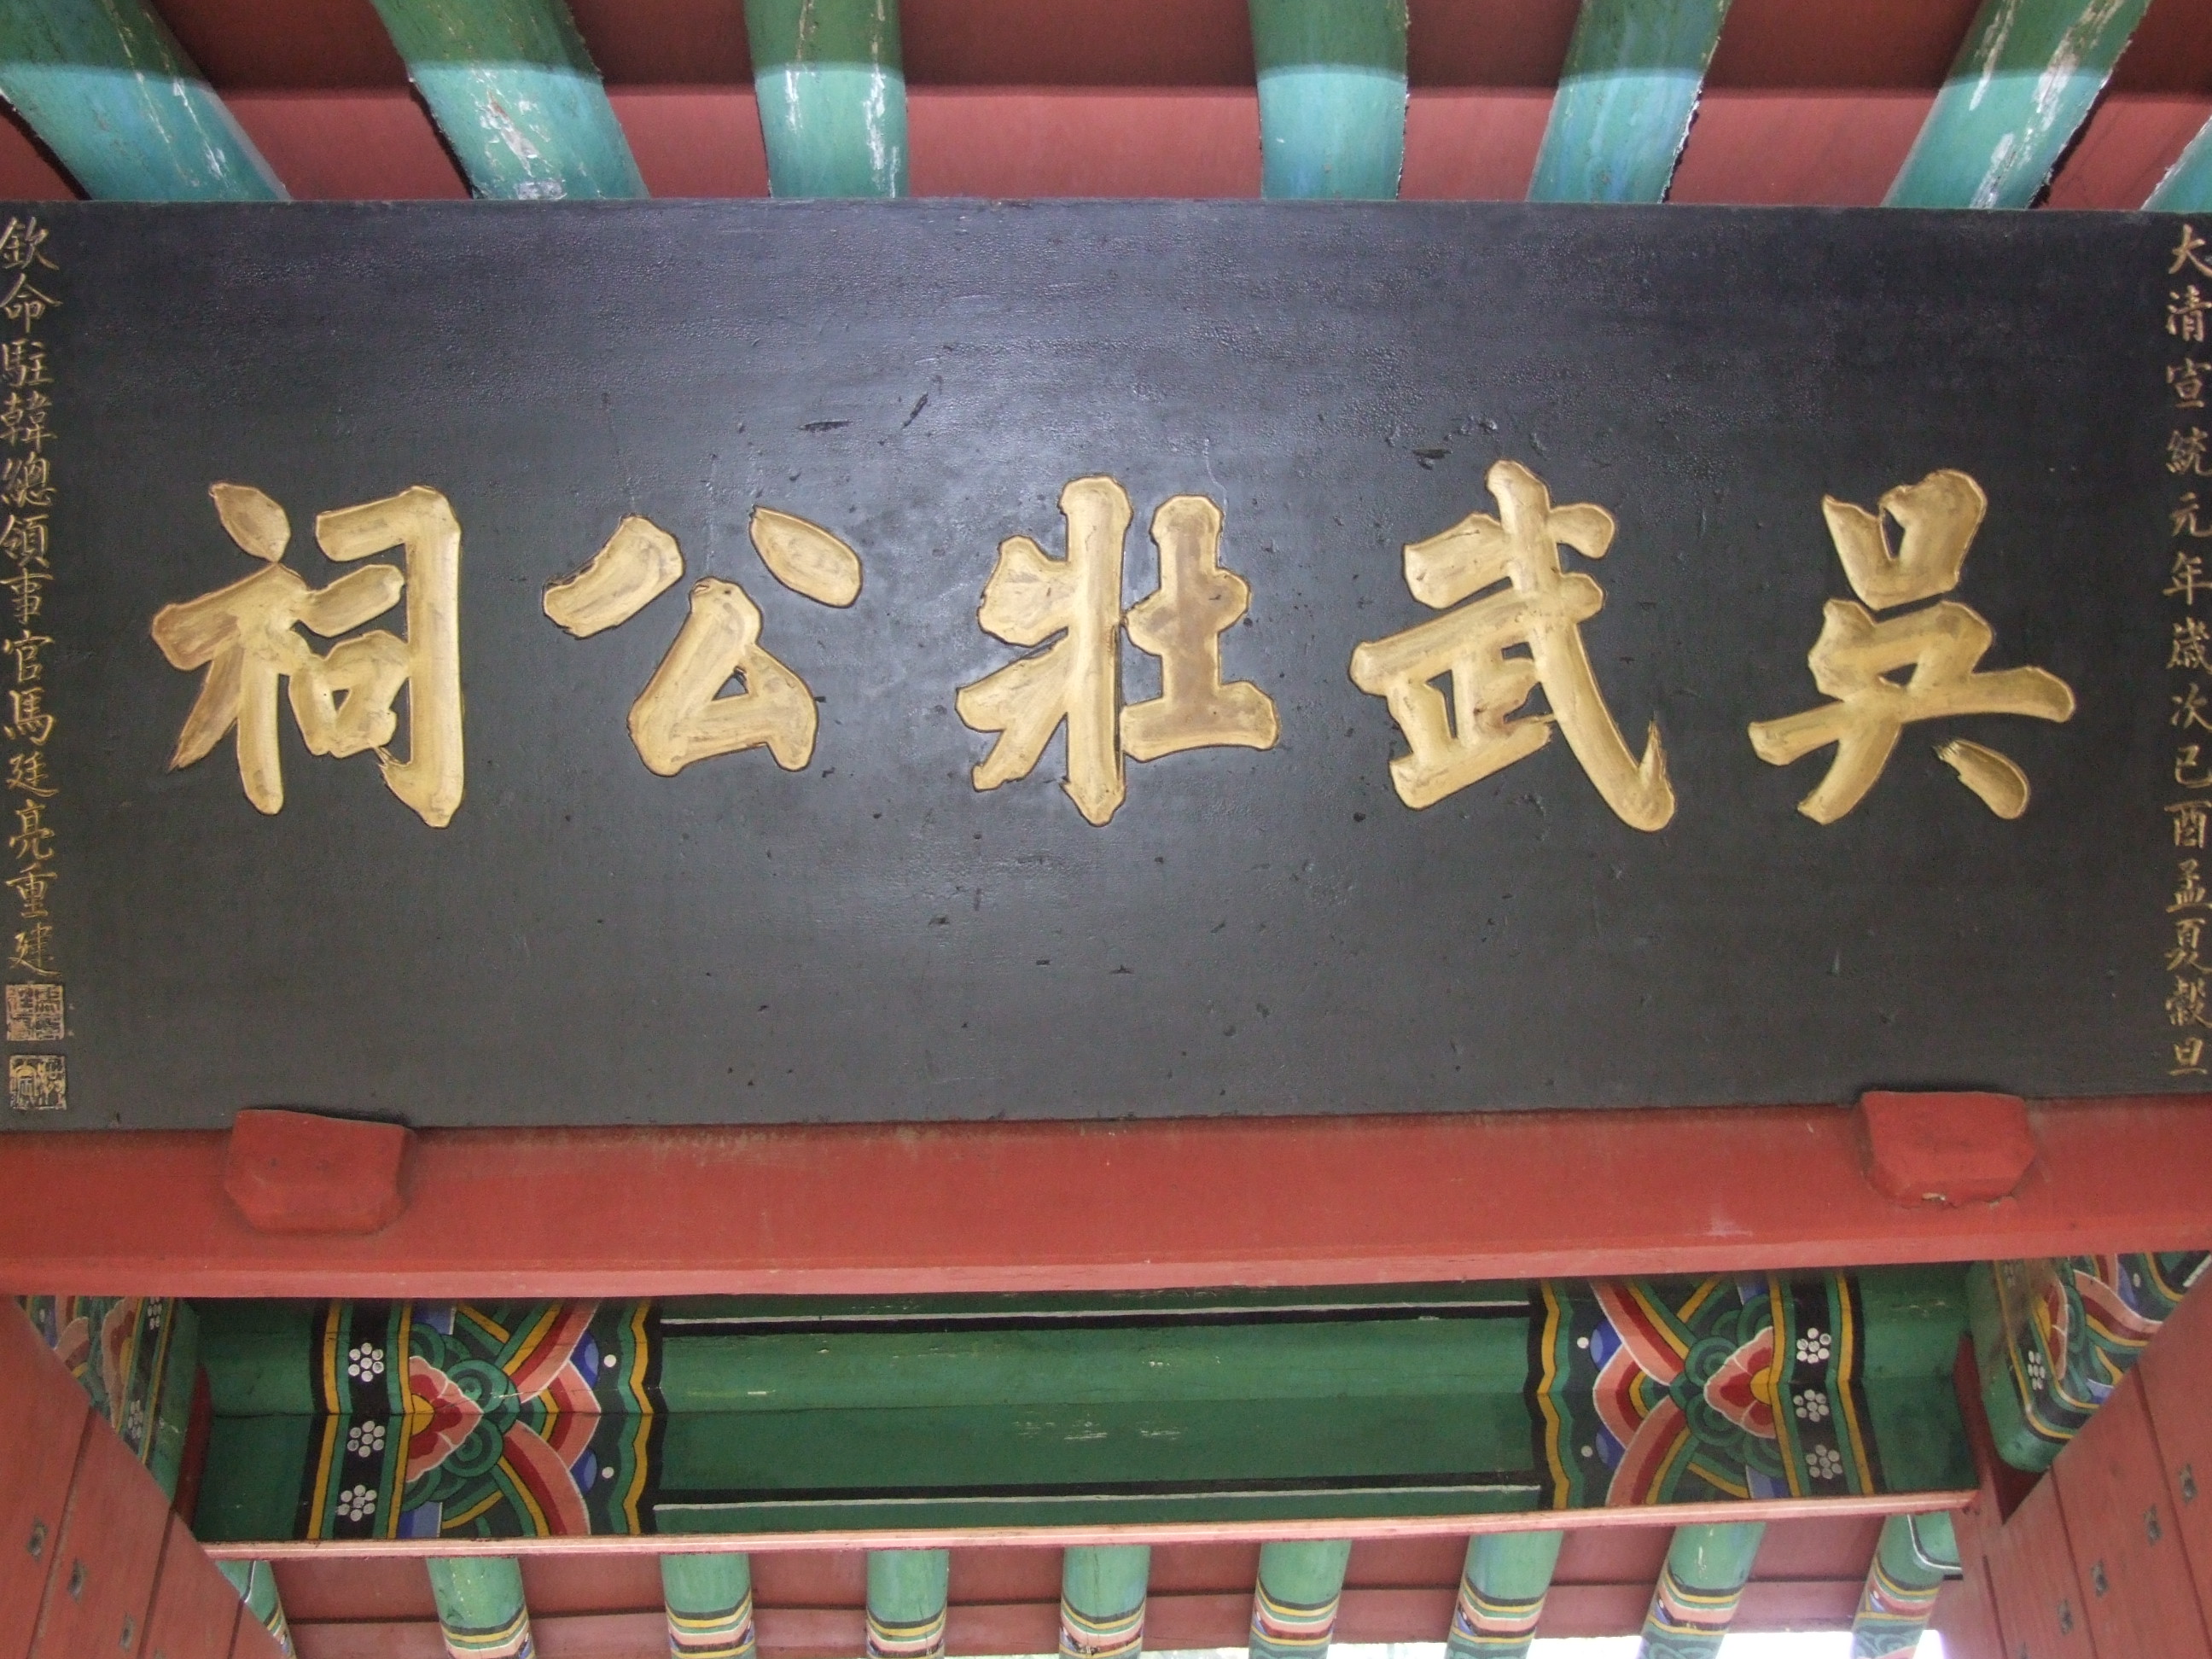 大清宣統元年歲次己酉孟夏穀旦
吳武壯公祠
欽命駐韓總領事官馬廷亮重建